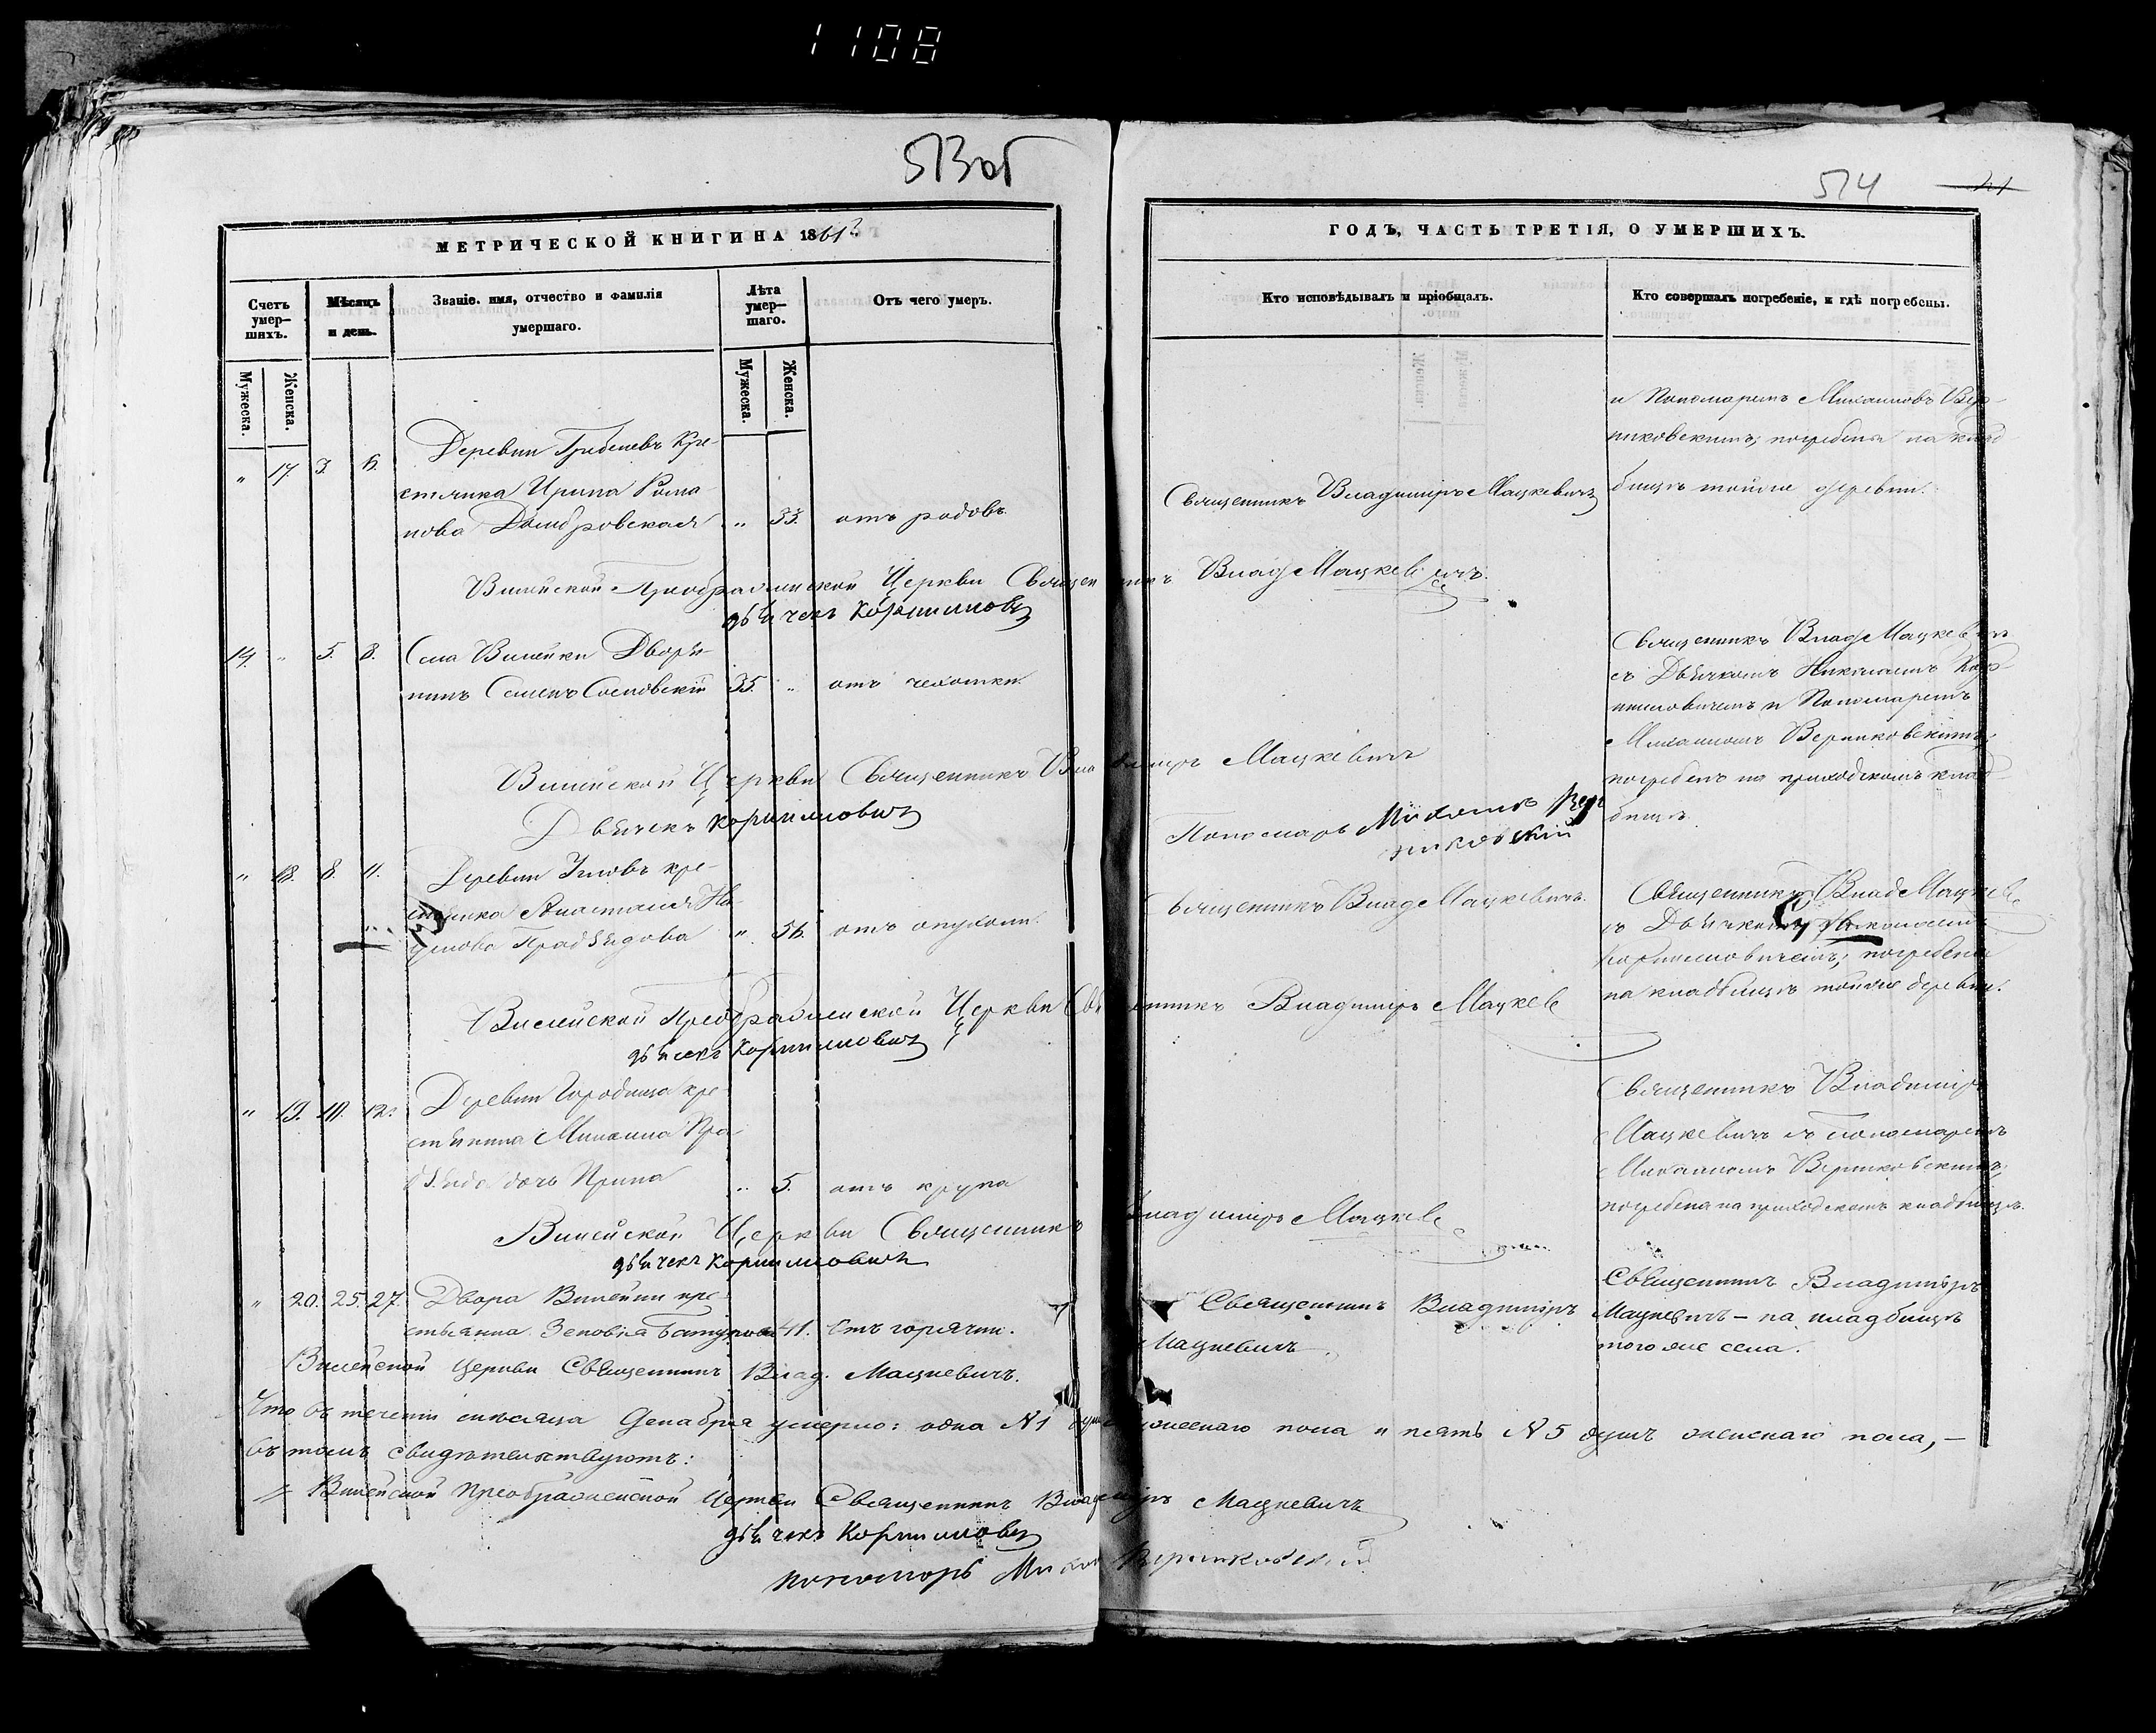 1108
513об
574
МЕТРИЧЕСКОЙ КНИГИ НА 1861й
Счетъ умер–шихъ.
Мѣсяцъ и день.
Званіе, имя, отчество и фамилія умершаго.
Лѣта умер–шаго.
Отъ чего умеръ.
Мужеска.
Женска.
Мужеска.
Женска.
ГОДЪ, ЧАСТЬ ТРЕТІЯ, О УМЕРШИХЪ.
Кто исповѣдывалъ и пріобщалъ.
Кто совершалъ погребеніе, и гдѣ погребены.
и Пономаремъ Михаиломъ Вер-
никовскимъ; погребена на клад
бищѣ тойже деревни.
" 17. 3. 6.
Деревни Грибеневъ Кре-
стьянка Ирина Рома
нова Домбровская " 33. отъ родовъ
Священникъ Владиміръ Мацкевичъ
Вилейской Преображенской Церкви Священникъ Влад Мацкевичъ.
дьячекъ Корниловичъ
14. " 5. 8.
Села Вилейки Дворя-
нинъ Семенъ Сосновскій 35. " отъ чахотки
Священникъ Влад Мацкевичъ
съ Дьячкомъ Николаемъ Кор
ниловичемъ и Пономаремъ
Михаиломъ Верниковскимъ;
погребенъ на приходскомъ клад-
бищѣ.
Вилейской Церкви Священникъ Владиміръ Мацкевичъ
Дьячекъ Корниловичъ
Пономарь Михаилъ Вер
никовскій
" 18. 8. 11.
Деревни кре-
стьянка Анастасія На
умова Прадѣдова " 56. отъ опухоли.
Священникъ Влад Мацкевичъ.
Священникъ Влад Мацкев
съ Дьячкомъ Николаемъ
Корниловичемъ; погребена
на кладбищѣ тойже деревни.
Вилейской Преображенской Церкви Священникъ Владиміръ Мацкев
дьячекъ Корниловичъ
" 19. 10. 12.
Деревни Городища кре-
стьянина Михаила Пра
дѣда дочь Ирина " 5. отъ крупа
Священникъ Владиміръ
Мацкевичъ съ Пономаремъ
Михаиломъ Верниковскимъ;
погребена на приходскомъ кладбищѣ.
Вилейской Церкви Священникъ Владиміръ Мацкев
дьячекъ Корниловичъ
" 20. 25. 27.
Двора Вилейки кре-
стьянка Зеновія 41. Отъ горячки.
Священникъ Владиміръ
Мацкевичъ.
Священникъ Владиміръ
Мацкевичъ – на кладбищѣ
того же села.
Вилейской Церкви Священникъ Влад. Мацкевичъ.
Что въ теченіи мѣсяца Декабря умерло: одна №1 душа мужескаго пола и пять №5 душъ женскаго пола, –
въ томъ свидѣтельствуютъ:
Вилейской Преображенской Церкви Священникъ Владиміръ Мацкевичъ
дьячекъ Корниловичъ
пономарь Михаилъ Верниковскій